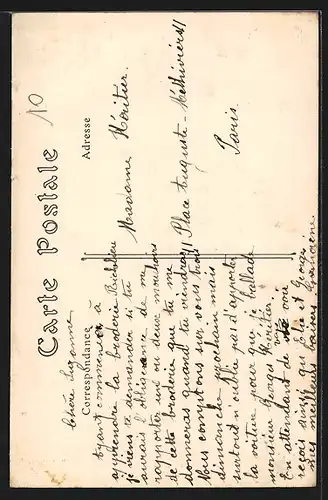 10
Carte Postale
Correspondance
Adresse
Chère Suzanne
Ayant commencer à
apprendre la broderie Richelieu
je viens te demander si tu
aurais l'obligeance de me
rapporter un ou deux mouchoirs
de cette broderie que tu me
donneras quand tu viendras
Nous comptons sur vous trois
dimanche prochain mais
surtout n'oublie pas d'apporter
la voiture pour que je ballade
monsieur Georges Héritier.
En attendant de vous voir
reçois ainsi que et Georges
mes meilleurs baisers
Madame Héritier.
Place Auguste-Méthiviers
Paris